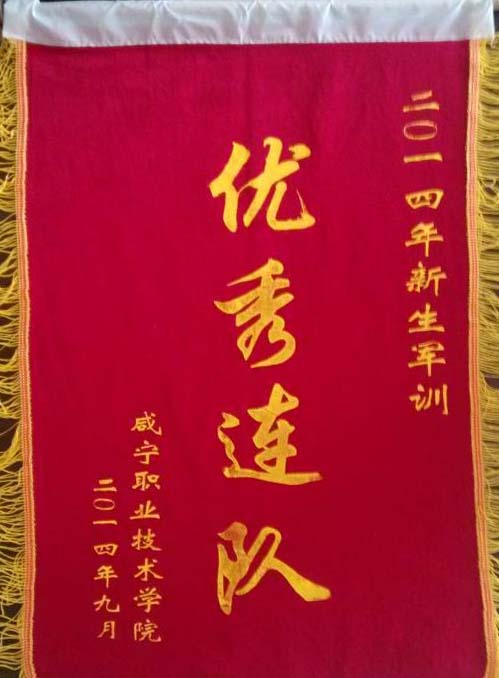 二〇一四年新生军训
优秀连队
咸宁职业技术学院
二〇一四年九月